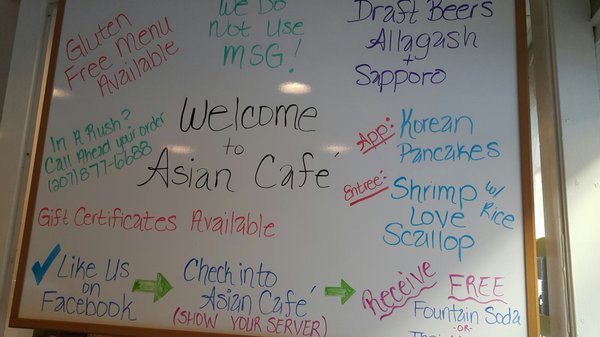 Gluten
Free Menu
Available
We Do
Not Use
MSG!
Draft Beers
Allagash
+
Sapporo
In A Rush?
Call Ahead your order
(207) 877-6688
Welcome
to
Asian Café
App: Korean
Pancakes
Entree: Shrimp w/
Love Rice
Scallop
Gift Certificates Available
Like Us
on
Facebook
Check into
Asian Café
(SHOW YOUR SERVER)
Receive FREE
Fountain Soda
-OR-